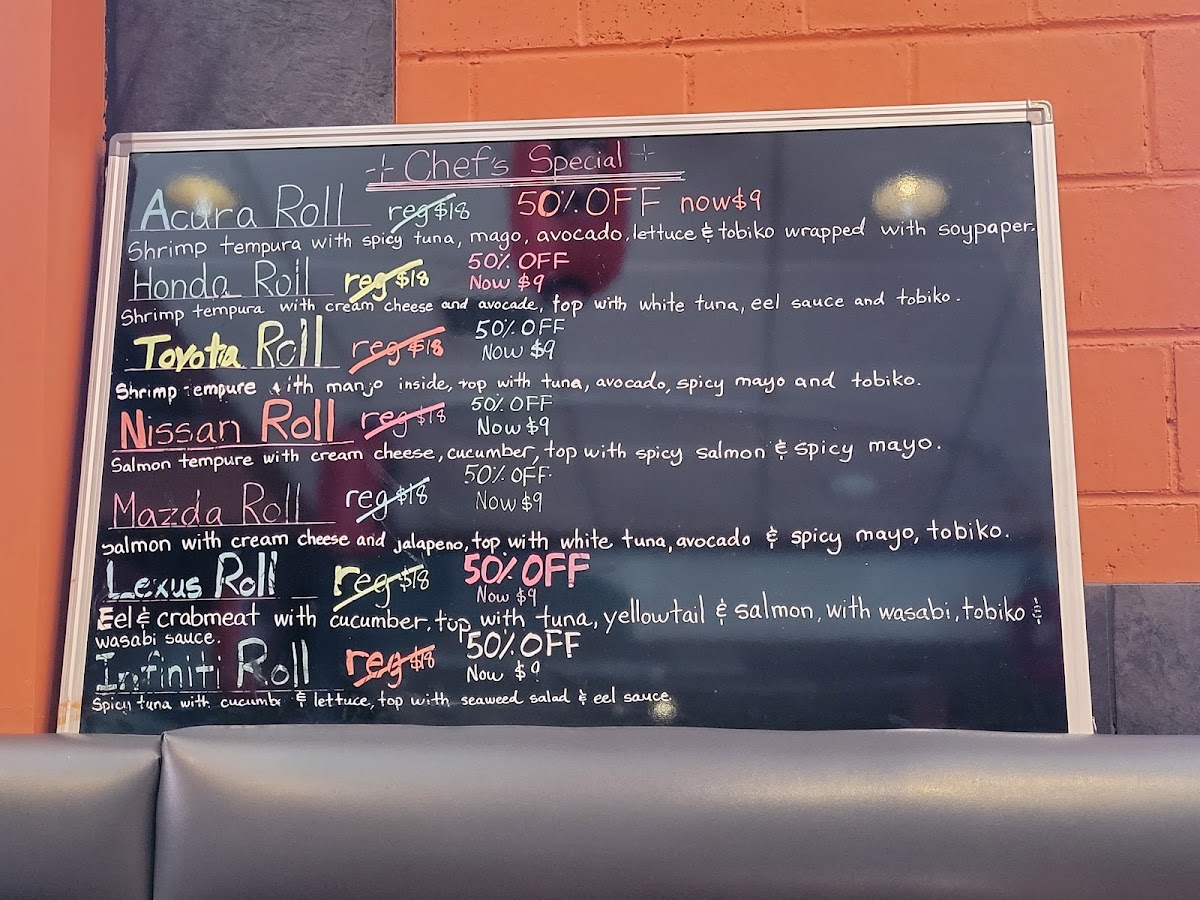 Chef's Special
Acura Roll reg $18 50% OFF now $9
Shrimp tempura with spicy tuna, mago, avocado, lettuce & tobiko wrapped with soypaper.
Honda Roll reg $18 50% OFF
Now $9
Shrimp tempura with cream cheese and avocade, top with white tuna, eel sauce and tobiko.
Toyota Roll reg $18 50% OFF
Now $9
Shrimp tempure with manjo inside, top with tuna, avocado, spicy mayo and tobiko.
Nissan Roll reg $18 50% OFF
Now $9
Salmon tempure with cream cheese, cucumber, top with spicy salmon & spicy mayo.
Mazda Roll reg $18 50% OFF
Now $9
Salmon with cream cheese and jalapeno, top with white tuna, avocado & spicy mayo, tobiko.
Lexus Roll reg $18 50% OFF
Now $9
Eel & crabmeat with cucumber, top with tuna, yellowtail & salmon, with wasabi, tobiko &
wasabi sauce.
Infiniti Roll reg $18 50% OFF
Now $9
Spicy tuna with cucumbr & lettuce, top with seaweed salad & eel sauce